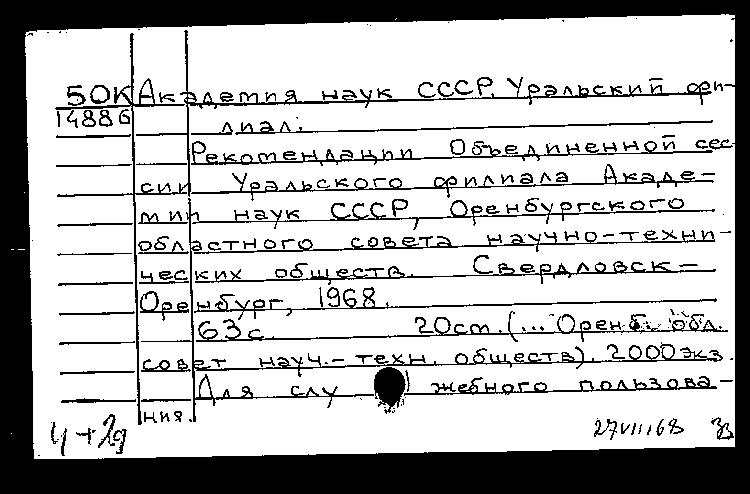 50К Академия наук СССР. Уральский фи-
14886 лиал.
Рекомендации Объединенной сес
сии Уральского филиала Акаде-
мии наук СССР, Оренбургского
областного совета научно-техни-
ческих обществ. Свердловск-
Оренбург, 1968.
63с. 20см. (... Оренб. обл.
совет науч.-техн. обществ). 2000экз.
Для слу жебного пользова-
ния.
4+2д 27VII168